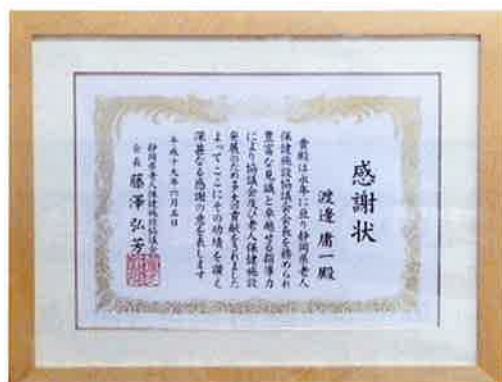 感謝状
渡邊庸一殿
貴殿は永年に亘り静岡県老人
保健施設協議会会長を務められ
豊富な見識と卓越せる指導力
により協議会及び老人保健施設
発展のため多大の貢献をされました
よってここにその功績を讃え
深甚なる感謝の意を表します
平成十九年六月五日
静岡県老人保健施設協議会
会長 藤澤弘芳